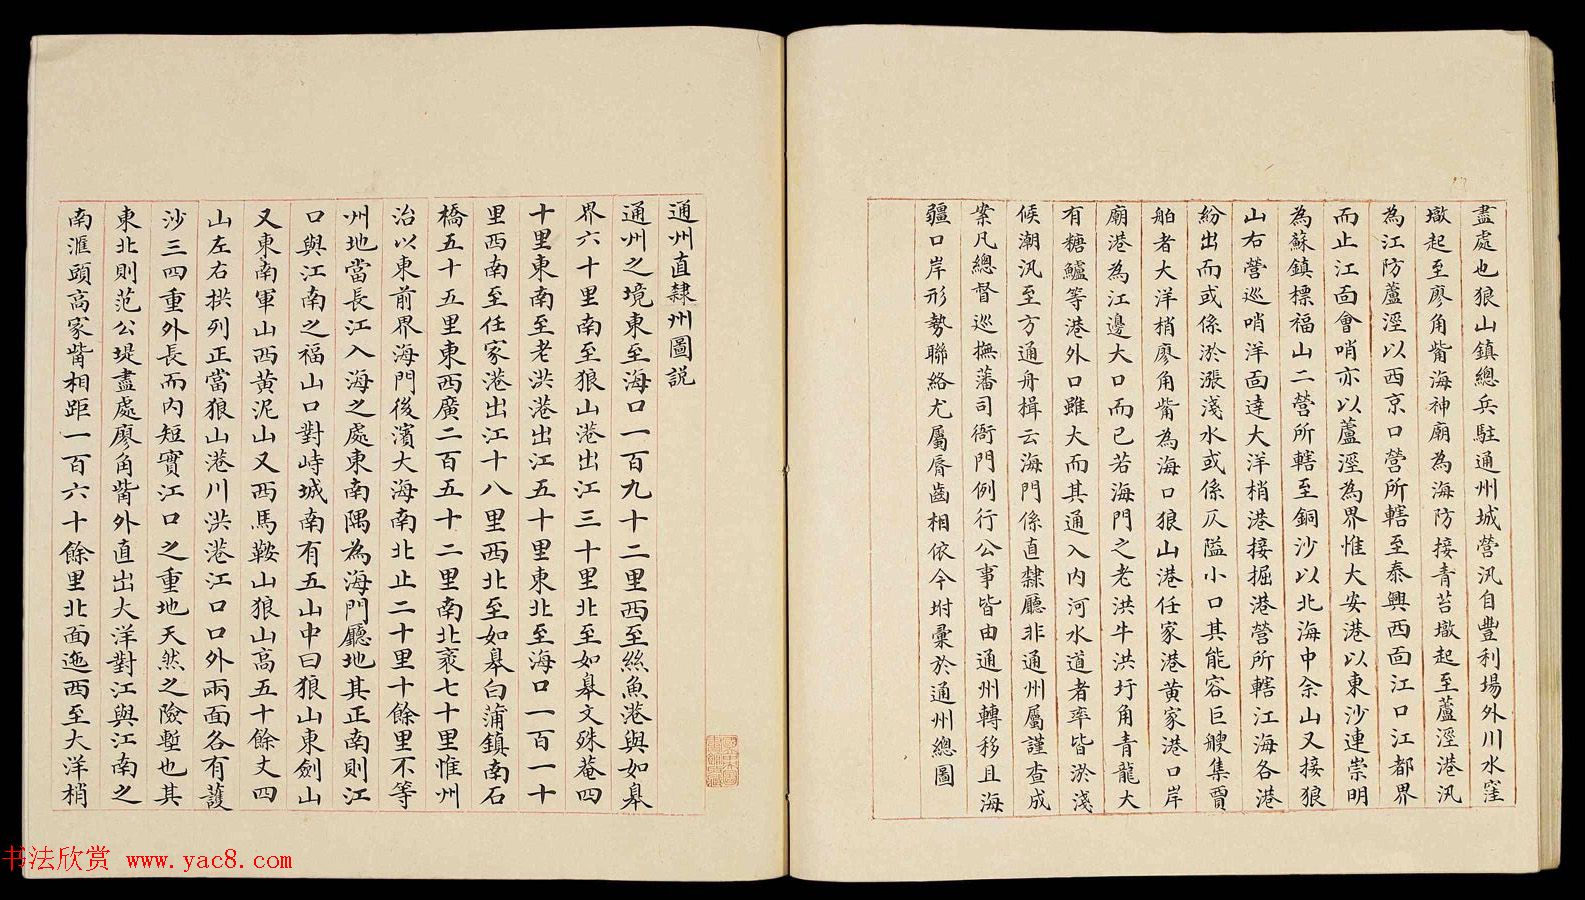 盡處也狼山鎮總兵駐通州城營汛自豐利場外川水窪
墩起至廖角觜海神廟為海防接青苔墩起至蘆涇港汛
為江防蘆涇以西京口營所轄至泰興西面江口江都界
而止江面會哨亦以蘆涇為界惟大安港以東沙連崇明
為蘇鎮標福山二營所轄至銅沙以北海中佘山又接狼
山右營巡哨洋面達大洋梢港接掘港營所轄江海各港
紛出而或係淤漲淺水或係仄隘小口其能容巨艘集賈
舶者大洋梢廖角觜為海口狼山港任家港黃家港口岸
廟港為江邊大口而已若海門之老洪牛洪圩角青龍大
有糖鱸等港外口雖大而其通入內河水道者率皆淤淺
候潮汛至方通舟楫云海門係直隸廳非通州屬謹查成
案凡總督巡撫藩司衙門例行公事皆由通州轉移且海
疆口岸形勢聯絡尤屬脣齒相依今坿彙於通州總圖
通州直隸州圖說
通州之境東至海口一百九十二里西至絲魚港與如皋
界六十里南至狼山港出江三十里北至如皋文殊菴四
十里東南至老洪港出江五十里東北至海口一百一十
里西南至任家港出江十八里西北至如皋白蒲鎮南石
橋五十五里東西廣二百五十二里南北袤七十里惟州
治以東前界海門後濱大海南北止二十里十餘里不等
州地當長江入海之處東南隅為海門廳地其正南則江
口與江南之福山口對峙城南有五山中曰狼山東劍山
又東南軍山西黃泥山又西馬鞍山狼山高五十餘丈四
山左右拱列正當狼山港川洪港江口口外兩面各有護
沙三四重外長而內短實江口之重地天然之險塹也其
東北則范公堤盡處廖角觜外直出大洋對江與江南之
南滙頭高家觜相距一百六十餘里北面迤西至大洋梢
书法欣赏 www.yac8.com